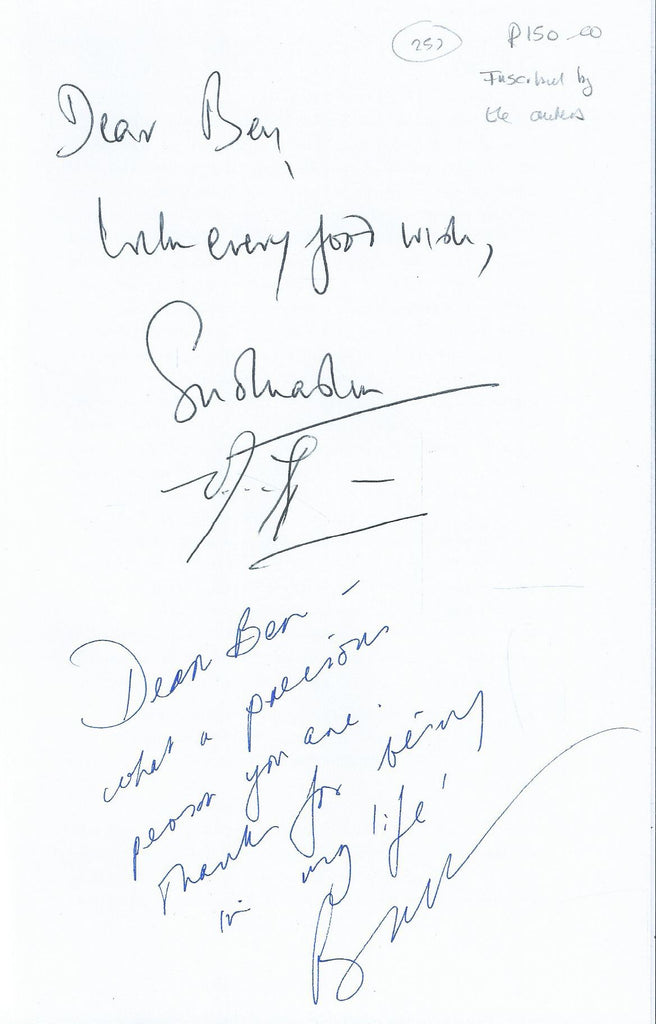 252
P150-00
Inscribed by
the authors
Dear Ben,
With every good wish,
Dear Ben -
what a precious
person you are.
Thanks for being
in my life!